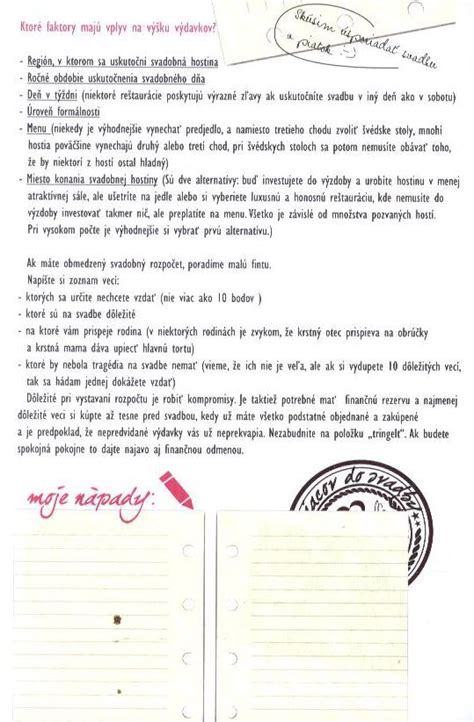 Ktoré faktory majú vplyv na výšku výdavkov?
Skúsim usporiadať svadbu
v piatok :-)
- Región, v ktorom sa uskutoční svadobná hostina
- Ročné obdobie uskutočnenia svadobného dňa
- Deň v týždni (niektoré reštaurácie poskytujú výrazné zľavy ak uskutočníte svadbu v iný deň ako v sobotu)
- Úroveň formálnosti
- Menu (niekedy je výhodnejšie vynechať predjedlo, a namiesto tretieho chodu zvoliť švédske stoly, mnohí
hostia povačšine vynechajú druhý alebo tretí chod, pri švédskych stoloch sa potom nemusíte obávať toho,
že by niektorí z hostí ostal hladný)
- Miesto konania svadobnej hostiny (Sú dve alternatívy: buď investujete do výzdoby a urobíte hostinu v menej
atraktívnej sále, ale ušetríte na jedle alebo si vyberiete luxusnú a honosnú reštauráciu, kde nemusíte do
výzdoby investovať takmer nič, ale preplatíte na menu. Všetko je závislé od množstva pozvaných hostí.
Pri vysokom počte je výhodnejšie si vybrať prvú alternatívu.)
Ak máte obmedzený svadobný rozpočet, poradíme malú fintu.
Napíšte si zoznam vecí:
- ktorých sa určite nechcete vzdať (nie viac ako 10 bodov )
- ktoré sú na svadbe dôležité
- na ktoré vám prispeje rodina (v niektorých rodinách je zvykom, že krstný otec prispieva na obrúčky
a krstná mama dáva upiecť hlavnú tortu)
- ktoré by nebola tragédia na svadbe nemať (vieme, že ich nie je veľa, ale ak si vydupete 10 dôležitých vecí,
tak sa hádam jednej dokážete vzdať)
Dôležité pri vystavaní rozpočtu je robiť kompromisy. Je taktiež potrebné mať finančnú rezervu a najmenej
dôležité veci si kúpte až tesne pred svadbou, kedy už máte všetko podstatné objednané a zakúpené
a je predpoklad, že nepredvídané výdavky vás už neprekvapia. Nezabudnite na položku „tringelt“. Ak budete
spokojná pokojne to dajte najavo aj finančnou odmenou.
moje nápady:
do svadby